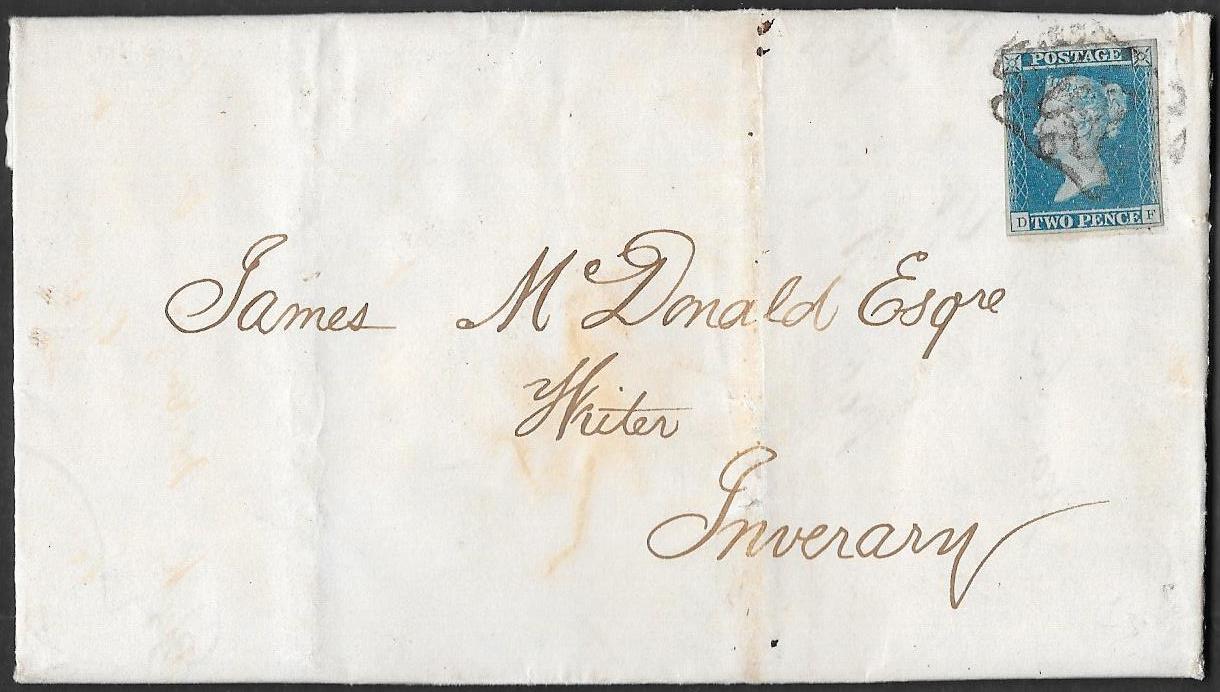 POSTAGE
D TWO PENCE F
James McDonald Esqre
Writer
Inverary